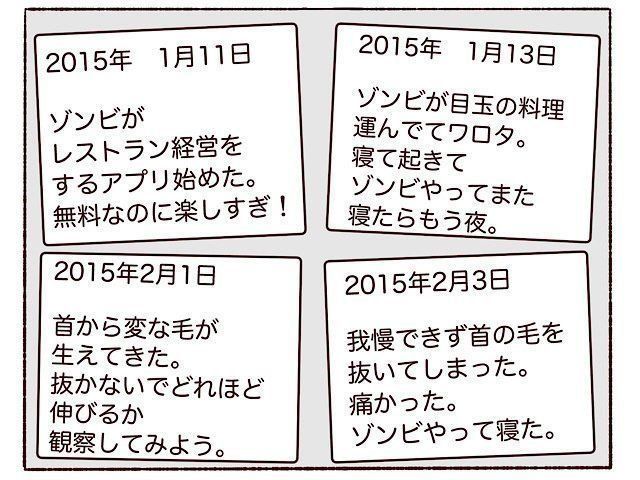 2015年　1月11日
ゾンビが
レストラン経営を
するアプリ始めた。
無料なのに楽しすぎ！
2015年　1月13日
ゾンビが目玉の料理
運んでてワロタ。
寝て起きて
ゾンビやってまた
寝たらもう夜。
2015年2月1日
首から変な毛が
生えてきた。
抜かないでどれほど
伸びるか
観察してみよう。
2015年2月3日
我慢できず首の毛を
抜いてしまった。
痛かった。
ゾンビやって寝た。